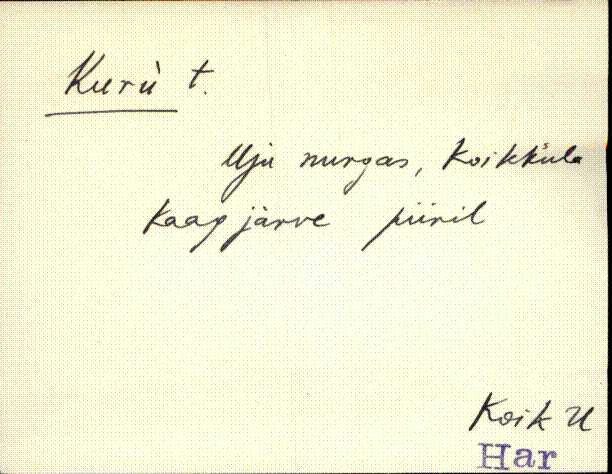 Kuru̇ t.
Uju nurgas, Koikküla
Kaagjärve piiril
Koik U
Har